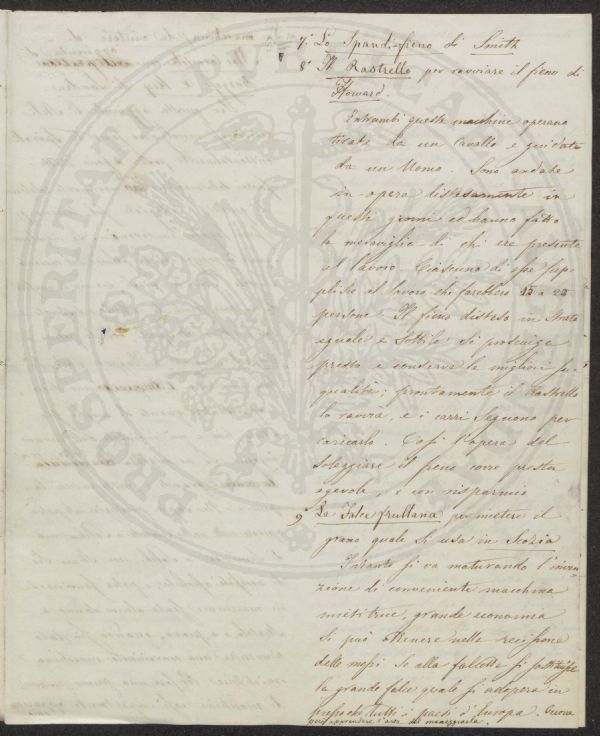 7° Lo Spandifieno di Smith
8° Il Rastrello per ravviare il fieno di
Howard.
Entrambi queste macchine operano
tirate da un Cavallo e guidate
da un Uomo. Sono andate
in opera distesamente in
questi giorni ed hanno fatto
la meraviglia di chi era presente
al lavoro. Ciascuna di esse sup-
plisce al lavoro che farebbero 15 a 20
persone. Il fieno disteso in strato
eguale e sottile si prosciuga
presto e conserva le migliori sue
qualità; prontamente il Rastrello
lo ravvia, e i carri seguono per
caricarlo. Così l'opera del
soleggiare il fieno corre presta
agevole, e con risparmio
9° La Falce frullana per mietere il
grano quale si usa in Scozia
Intanto si va maturando l'inven-
zione di conveniente macchina
mietitrice, grande economia
si può ottenere nella recisione
delle messi se alla falcetta si sostituisse
la grande falce quale si adopera in
pressoché tutti i paesi d'Europa.
però apprendere l'arte del maneggiarla.
PROSPERITATI PUBLICAE